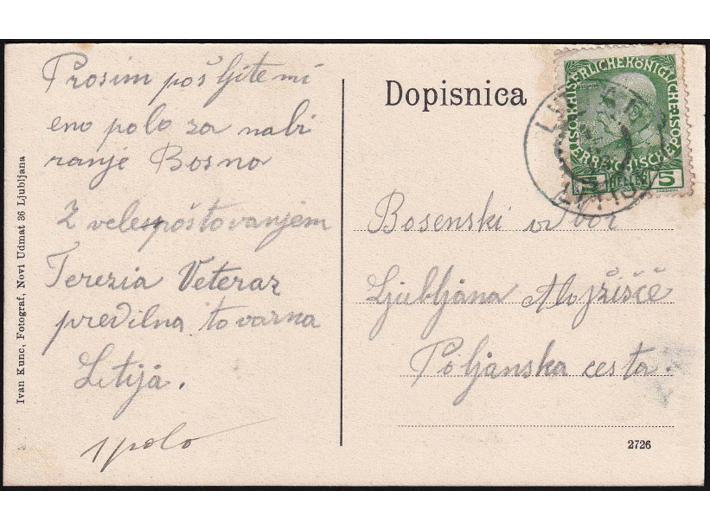 Prosim pošljite mi
eno polo za nabi
ranje Bosno
Z velespoštovanjem
Terezia Veteraz
predilna tovarna
Litija.
1 polo
Ivan Kunc, Fotograf, Novi Udmat 36 Ljubljana
Dopisnica
KAISERLICHE KÖNIGLICHE
ÖSTERREICHISCHE
5 5
Bosenski izvor
Ljubljana Alojzišče
Poljanska cesta.
2726